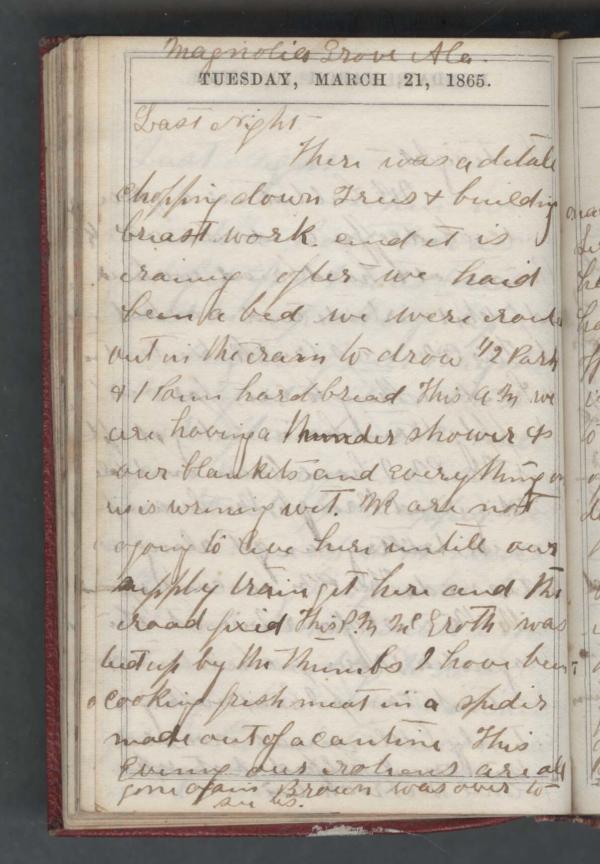 Magnolia Grove Ala.
TUESDAY, MARCH 21, 1865.
Last Night
There was a detale
chopping down Trees & building
breast work. and it is
raining after we haid
been a bed we were
out in the rain to drow 1/2 Ration
& 1 Poun hard bread This A M we
are having a thunder shower &
our blankets and everything
us is wrining wet. We are not
going to leve here untill our
supply train get here and the
road fixed This P. M Mc Groth was
tied up by the Thumbs I have been
cooking fresh meat in a spider
made out of a cantine This
Evning our rations are all
gone again Brown was over to
see us.